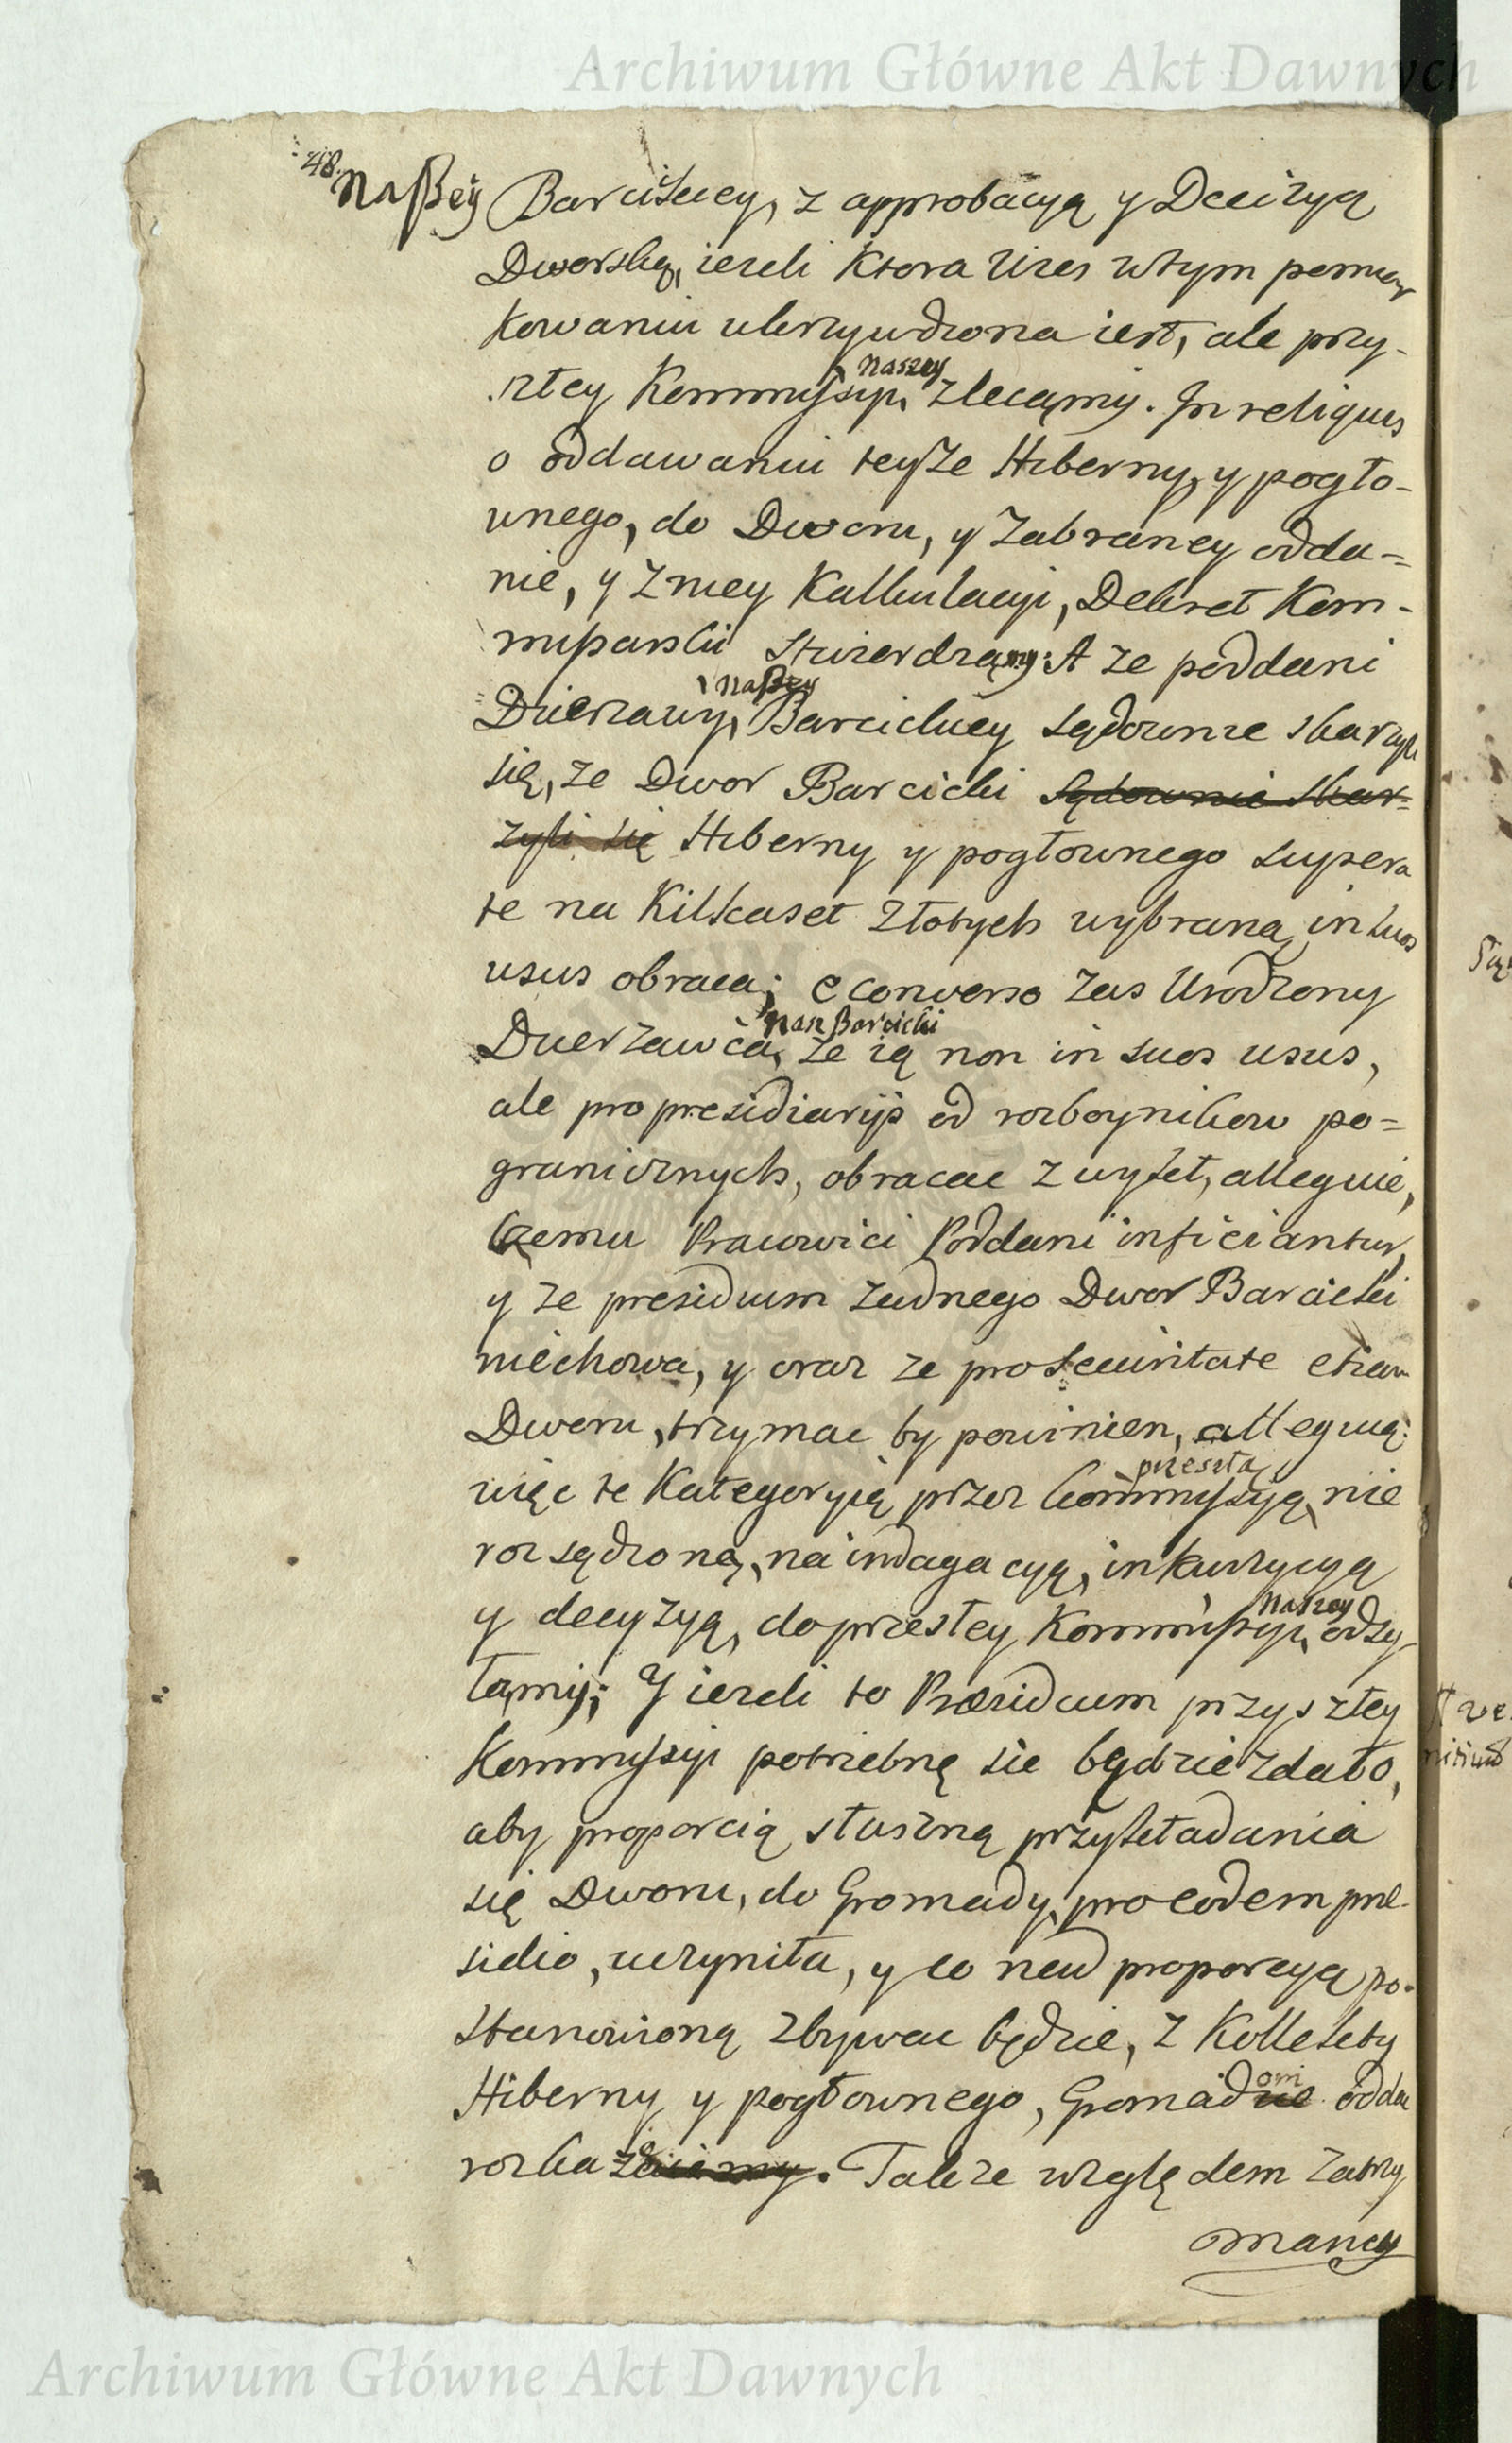 Archiwum Główne Akt Dawnych
48.
Naszey Barcickiey, z approbacyą y Decizyą
Dworską, iezeli Ktora Wies wtym pomiar
kowaniu ukrzywdzona iest, ale przy-
szłey Kommissyi Naszey zlecamy. In reliquis
o oddawaniu teyze Hiberny, y pogło-
wnego, do Dworu, y zabraney odda=
nie, y zniey Kalkulacyi, Dekret Kom-
missarski stwierdzamy: A ze poddani
Dzierzawy Naszey Barcickiey sądownie skarzyli
się, ze Dwor Barcicki sądownie skar=
zyli się Hiberny y pogłownego supera
te na Kilkaset Złotych wybraną, in suos
usus obraca; e converso zas Urodzony
Dzierzawca Nasz Barcicki, ze ią non in suos usus,
ale pro presidiarijs od rozboynikow po=
granicznych, obracac zwykł, alleguie,
Czemu Pracowici Poddani inficiantur,
y ze presidium zadnego Dwor Barcicki
niechowa, y oraz ze pro securitate etiam
Dworu, trzymac by powinien, alleguią:
więc te Kategoryią przez Kommissyą przeszłą nie
rozsądzoną, na indagacyą, inkwizycyą
y decyzyą, do przeszłey Kommissyi Naszey odsy-
łamy; Y iezeli to Præsidium przyszłey
Kommissyi potrzebnę sie będzie zdało,
aby proporcią słuszną przykładania
się Dworu, do Gromady, pro eodem pre-
sidio, uczyniła, y co nad proporcyą po-
stanowioną zbywac będzie, z Kollekty
Hiberny y pogłownego, Gromadom oddac
rozkaze. Takze względem zatrzy
maney
Archiwum Główne Akt Dawnych